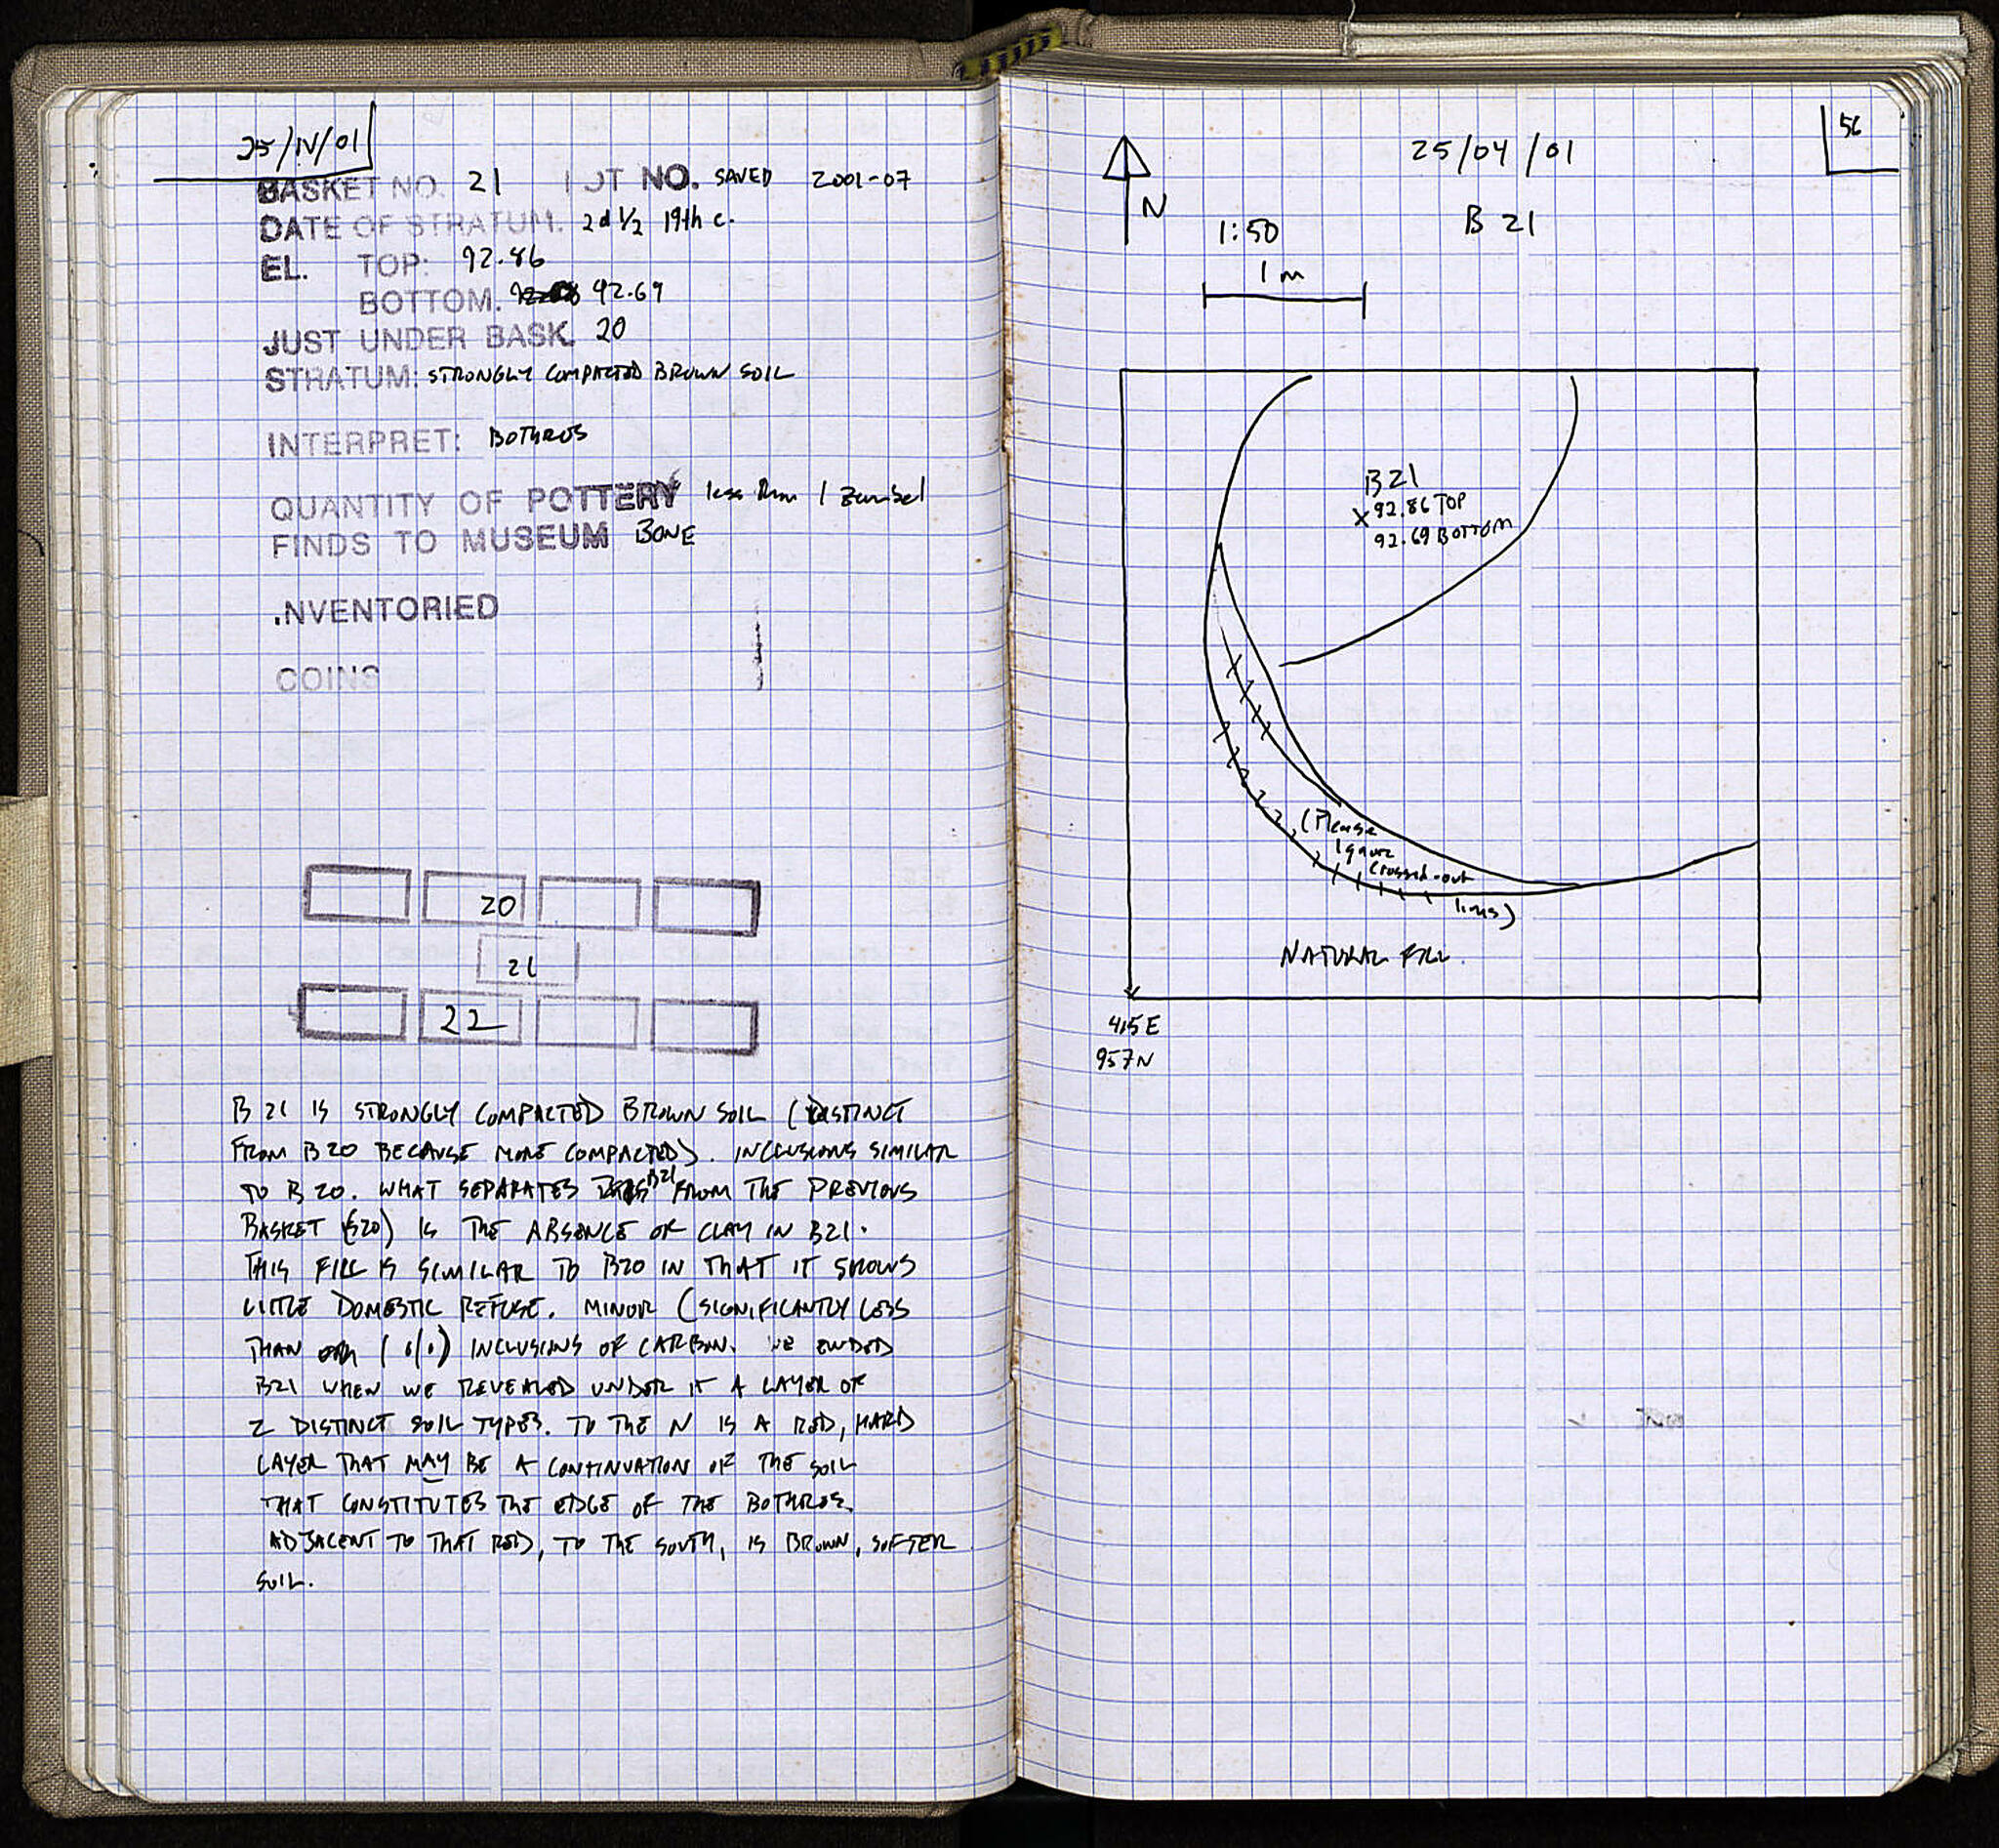 25/IV/01
BASKET NO. 21 LOT NO. SAVED 2001-07
DATE OF STRATUM. 2d ½ 19th c.
EL. TOP: 92.86
BOTTOM. 92.69
JUST UNDER BASK. 20
STRATUM: STRONGLY COMPACTED BROWN SOIL
INTERPRET: BOTHROS
QUANTITY OF POTTERY less than 1 Zembel
FINDS TO MUSEUM BONE
.NVENTORIED
COINS
20
21
22
B 21 IS STRONGLY COMPACTED BROWN SOIL (DISTINCT
FROM B20 BECAUSE MORE COMPACTED). INCLUSIONS SIMILAR
TO B 20. WHAT SEPARATES B21 FROM THE PREVIOUS
BASKET (B20) IS THE ABSENCE OF CLAY IN B21.
THIS FILL IS SIMILAR TO B20 IN THAT IT SHOWS
LITTLE DOMESTIC REFUSE. MINOR (SIGNIFICANTLY LESS
THAN 1 %) INCLUSIONS OF CARBON. WE ENDED
B21 WHEN WE REVEALED UNDER IT A LAYER OF
2 DISTINCT SOIL TYPES. TO THE N IS A RED, HARD
LAYER THAT MAY BE A CONTINUATION OF THE SOIL
THAT CONSTITUTES THE EDGE OF THE BOTHROS.
ADJACENT TO THAT RED, TO THE SOUTH, IS BROWN, SOFTER
SOIL.
56
25/04/01
N
B 21
1:50
1 m
B 21
x 92.86 TOP
92.69 BOTTOM
(Please
ignore
crossed-out
lines)
NATURAL FILL.
415 E
957 N